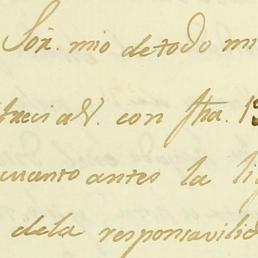 Sor. mio de todo mi
con fha. 1
cuanto antes la li
dela responsavilid